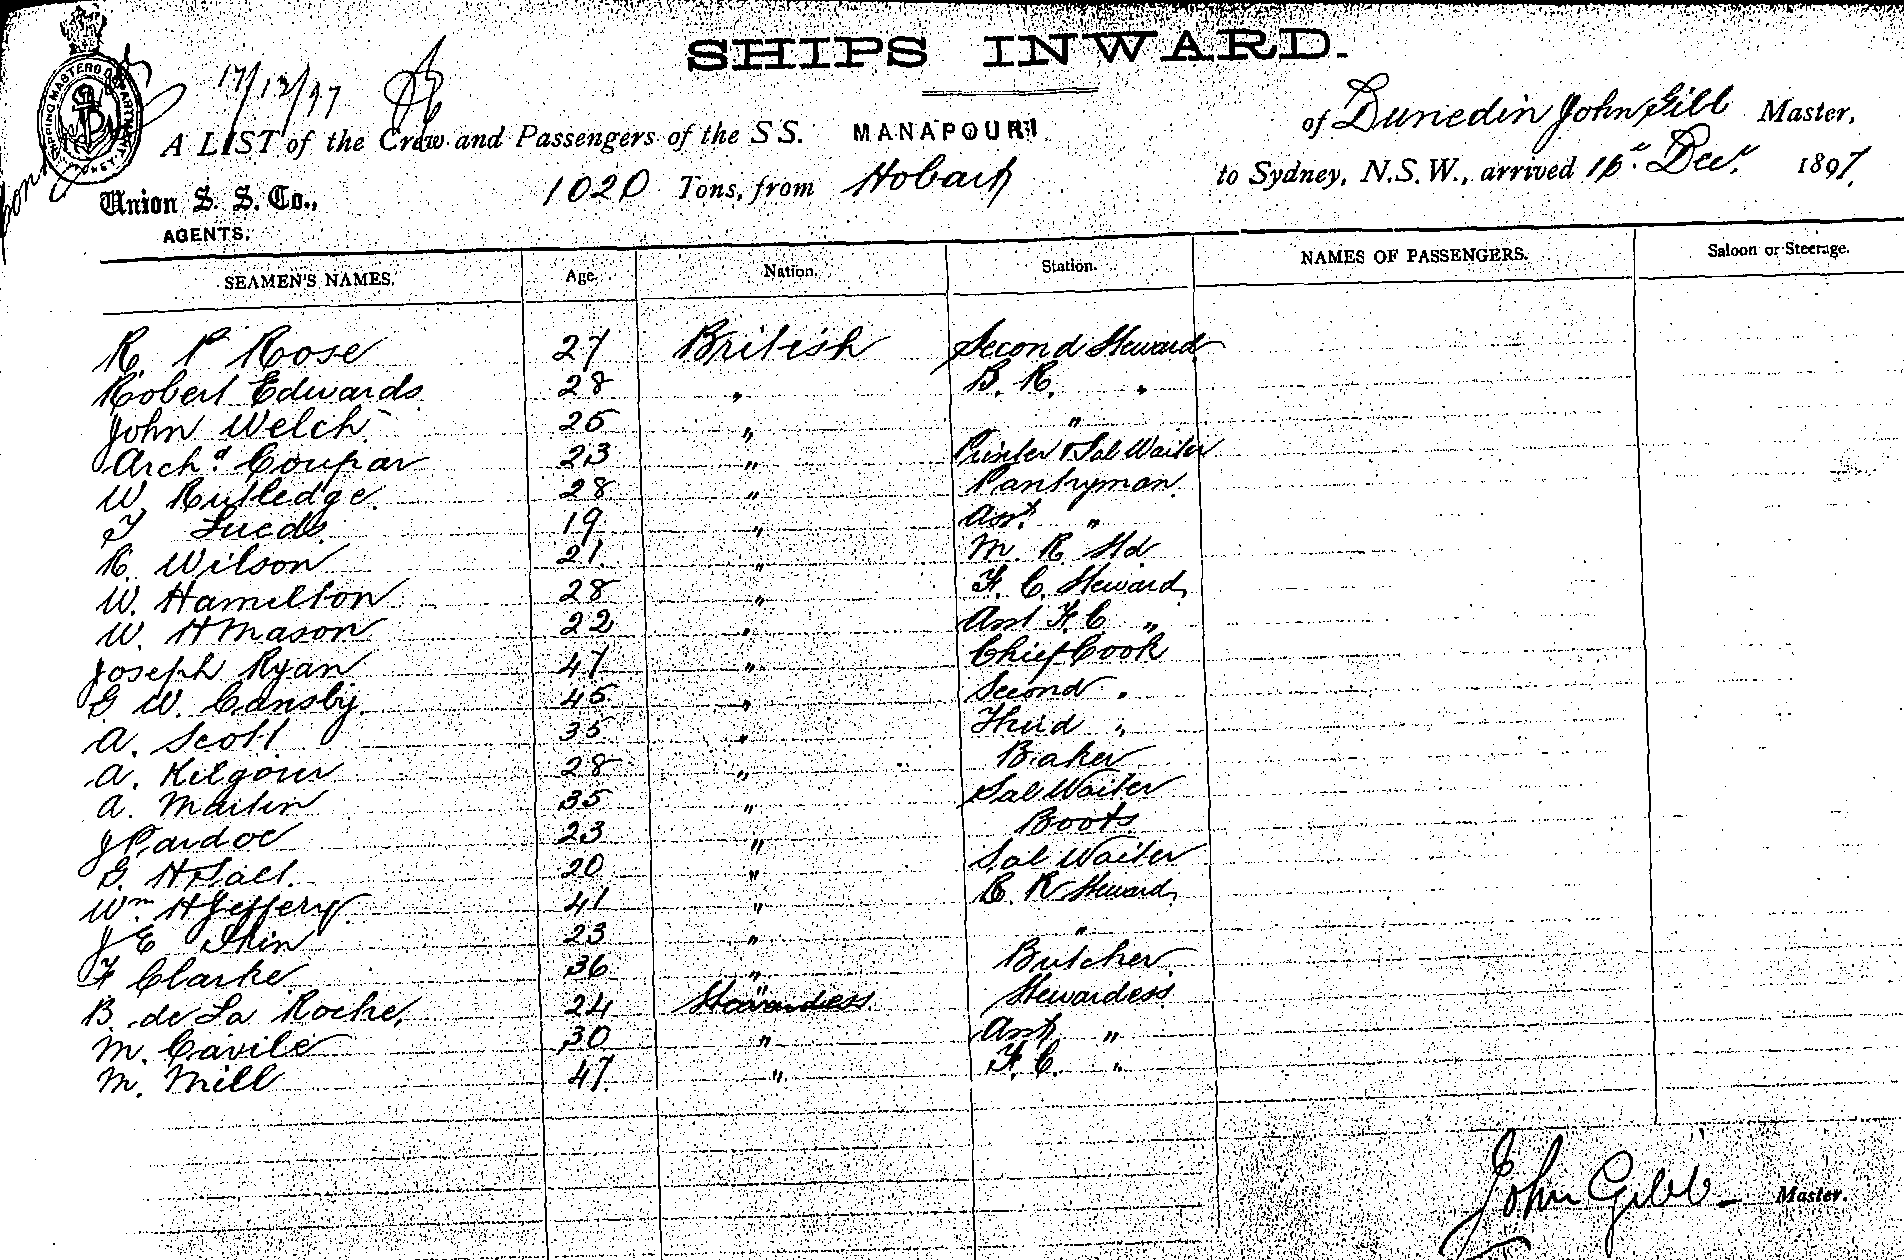 SHIPS INWARD.
17/12/97
SHIPPING MASTERS DEPARTMENT
A LIST of the Crew and Passengers of the SS. MANAPOURI of Dunedin John Gibb Master,
Union S. S. Co., 1020 Tons, from Hobart to Sydney, N.S.W., arrived 16th Decr 1897.
AGENTS.
SEAMEN'S NAMES. Age. Nation. Station. NAMES OF PASSENGERS. Saloon or Steerage.
R. P Rose 27 British Second Steward
Robert Edwards 28 " B. R. "
John Welch 25 " "
Archd Coupar 23 " Printer & Sal Waiter
W. Rutledge 28 " Pantryman
19 " Asst "
R. Wilson 21 " M. R Std
W. Hamilton 28 " F. C. Steward
W. H Mason 22 " Asst F. C "
Joseph Ryan 47 " Chief Cook
G. W. Cansby 45 " Second "
A. Scott 35 " Third "
A. Kilgour 28 " Baker
A. Martin 35 " Sal Waiter
J Pardoe 23 " Boots
G. H Salt. 20 " Sal Waiter
Wm H Jeffery 41 " B. R Steward
J E 23 " "
F Clarke 36 " Butcher
B. de La Roche 24 " Stewardess Stewardess
M. Cavile 30 " Asst "
M. Mill 47 " F. C. "
John Gibb Master.